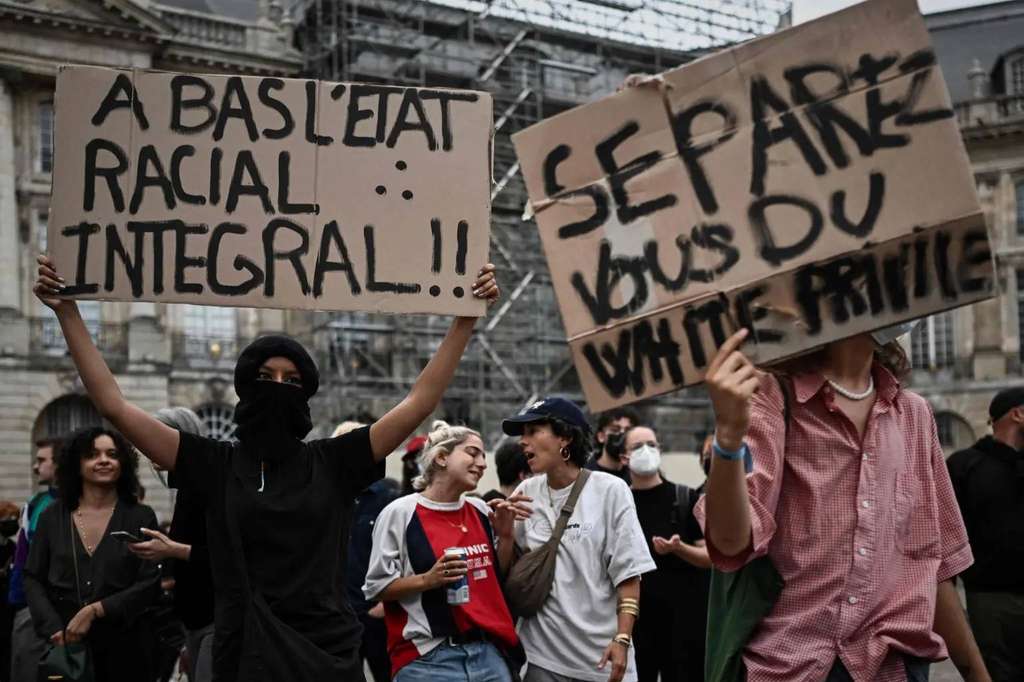 A BAS L'ÉTAT
RACIAL
INTEGRAL !!
SÉPAREZ
VOUS DU
WHITE PRIVILE